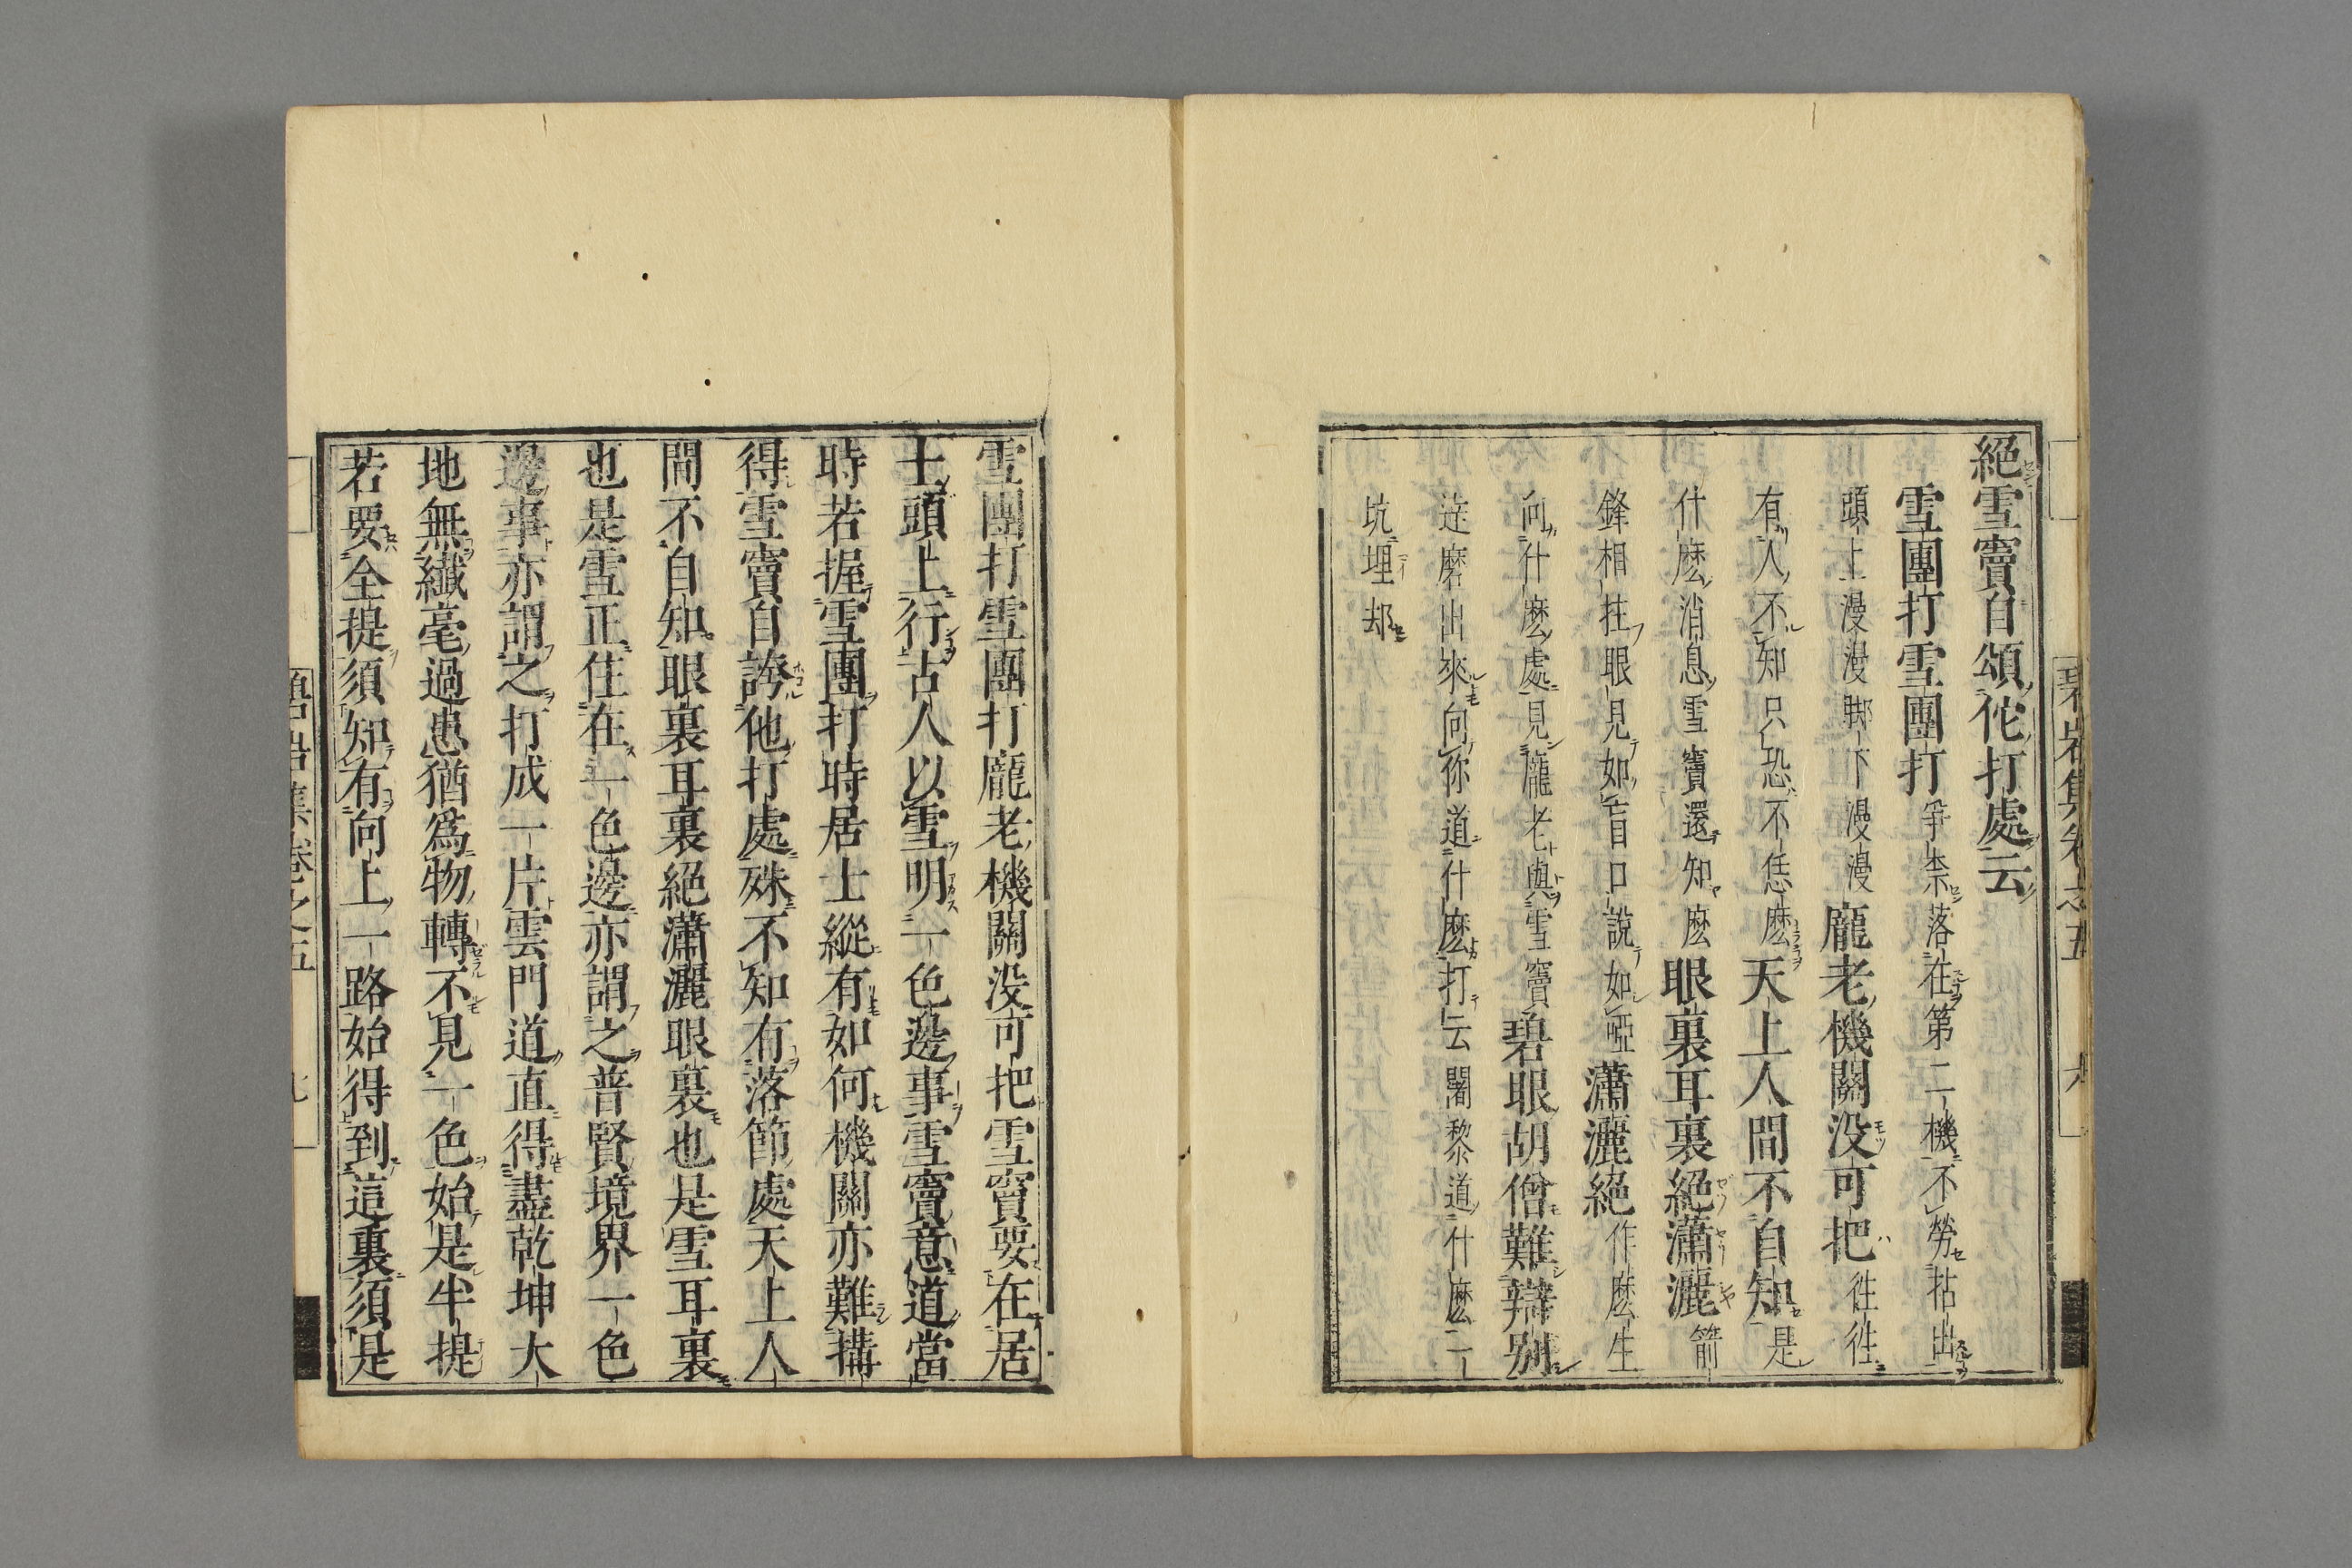 絕雪竇自頌佗打處云
雪團打雪團打爭柰落在第二機不勞拈出
頭上漫漫脚下漫漫龐老機關没可把往往
有人不知只恐不恁麽天上人間不自知是
什麽消息雪竇還知麽眼裏耳裏絕瀟灑箭
鋒相拄眼見如盲口說如啞瀟灑絕作麽生
向什麽處見龐老與雪竇碧眼胡僧難辯別
達磨出來向你道什麽打云闍黎道什麽一
坑埋却
碧岩集卷之五
雪團打雪團打龐老機關没可把雪竇要在居
士頭上行古人以雪明一色邊事雪竇意道當
時若握雪團打時居士縱有如何機關亦難搆
得雪竇自誇他打處殊不知有落節處天上人
間不自知眼裏耳裏絕瀟灑眼裏也是雪耳裏
也是雪正住在一色邊亦謂之普賢境界一色
邊事亦謂之打成一片雲門道直得盡乾坤大
地無纖毫過患猶爲物轉不見一色始是半提
若要全提須知有向上一路始得到這裏須是
碧岩集卷之五